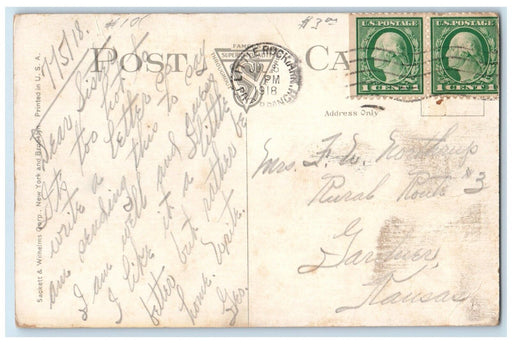 #10¢
$3.00
7/15/18.
POST CARD
Address Only
U.S. POSTAGE
1 CENT 1
U.S. POSTAGE
1 CENT 1
LITTLE ROCK, ARK.
PM
1918
PIKE BRANCH
Dear Sister
It's too hot to
write a letter so
am sending this to say
I am well and guess
I like it a little
better but rather be
home. Write.
Geo.
Mrs. F. W. Northup
Rural Route #3
Gardner,
Kansas
Sackett & Wilhelms Corp., New York and Brooklyn Printed in U.S.A.